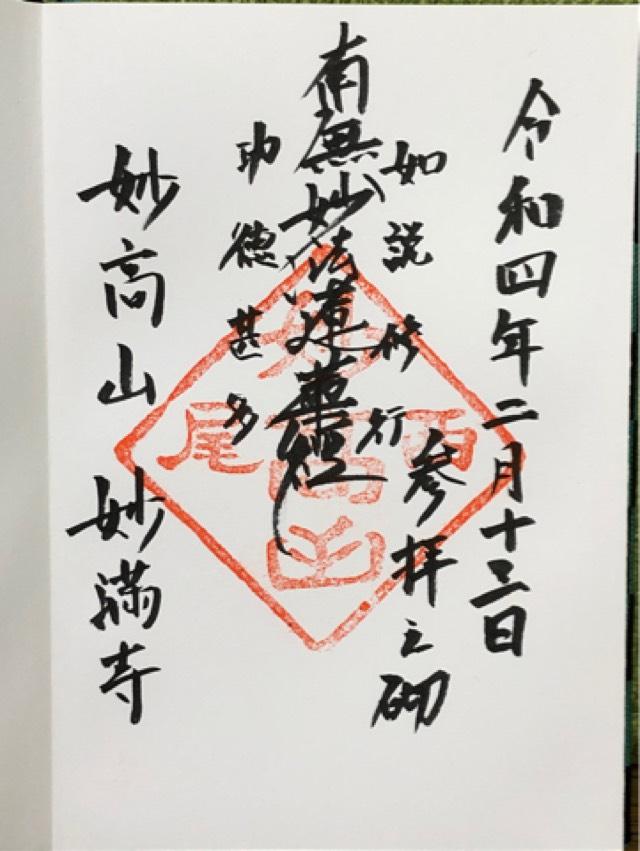 令和四年二月十三日
参拝之砌
如説修行
南無妙法蓮華経
功徳甚多
妙高山 妙満寺
西尾
妙高山